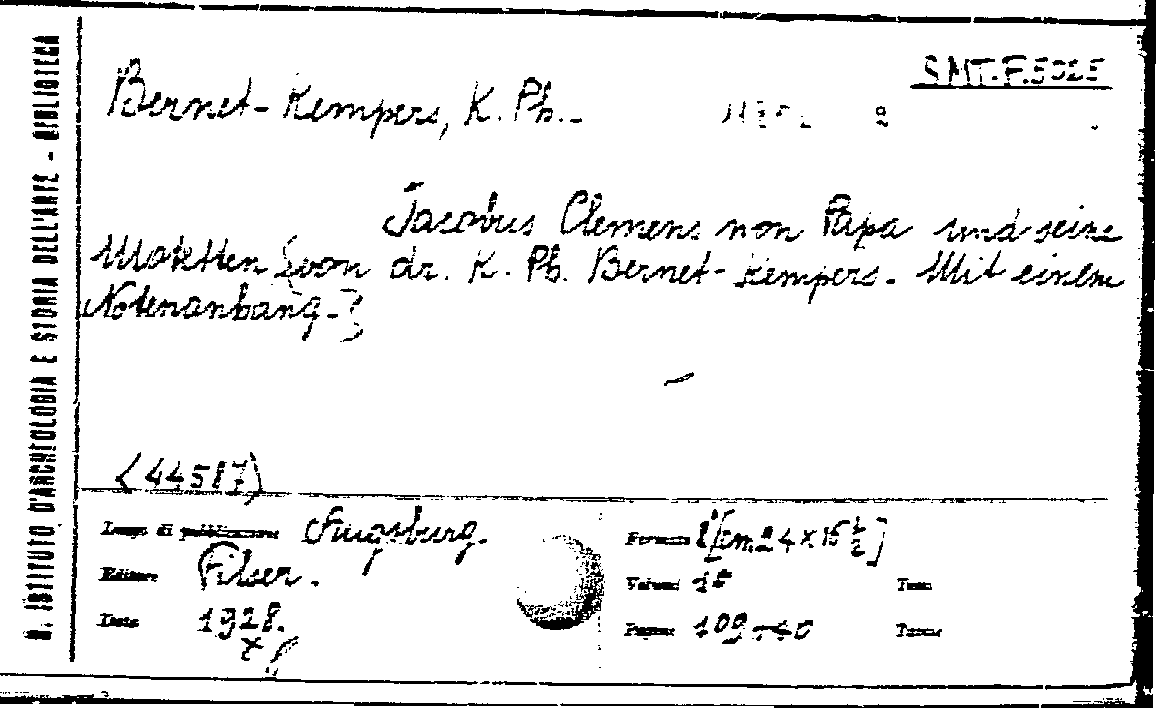 R. ISTITUTO D'ARCHEOLOGIA E STORIA DELL'ARTE - BIBLIOTECA
SMT.F.5025
Bernet-Kempers, K. Ph. -
Jacobus Clemens non Papa und seine
Motetten [von dr. K. Ph. Bernet-Kempers. Mit einem
Notenanhang-]
(44587)
Luogo di pubblicazione Augsburg.
Editore Filser.
Data 1928.
Formato 8° [cm. 24 x 16 ½]
Volumi 1
Tomi
Pagine 109+40
Tavole